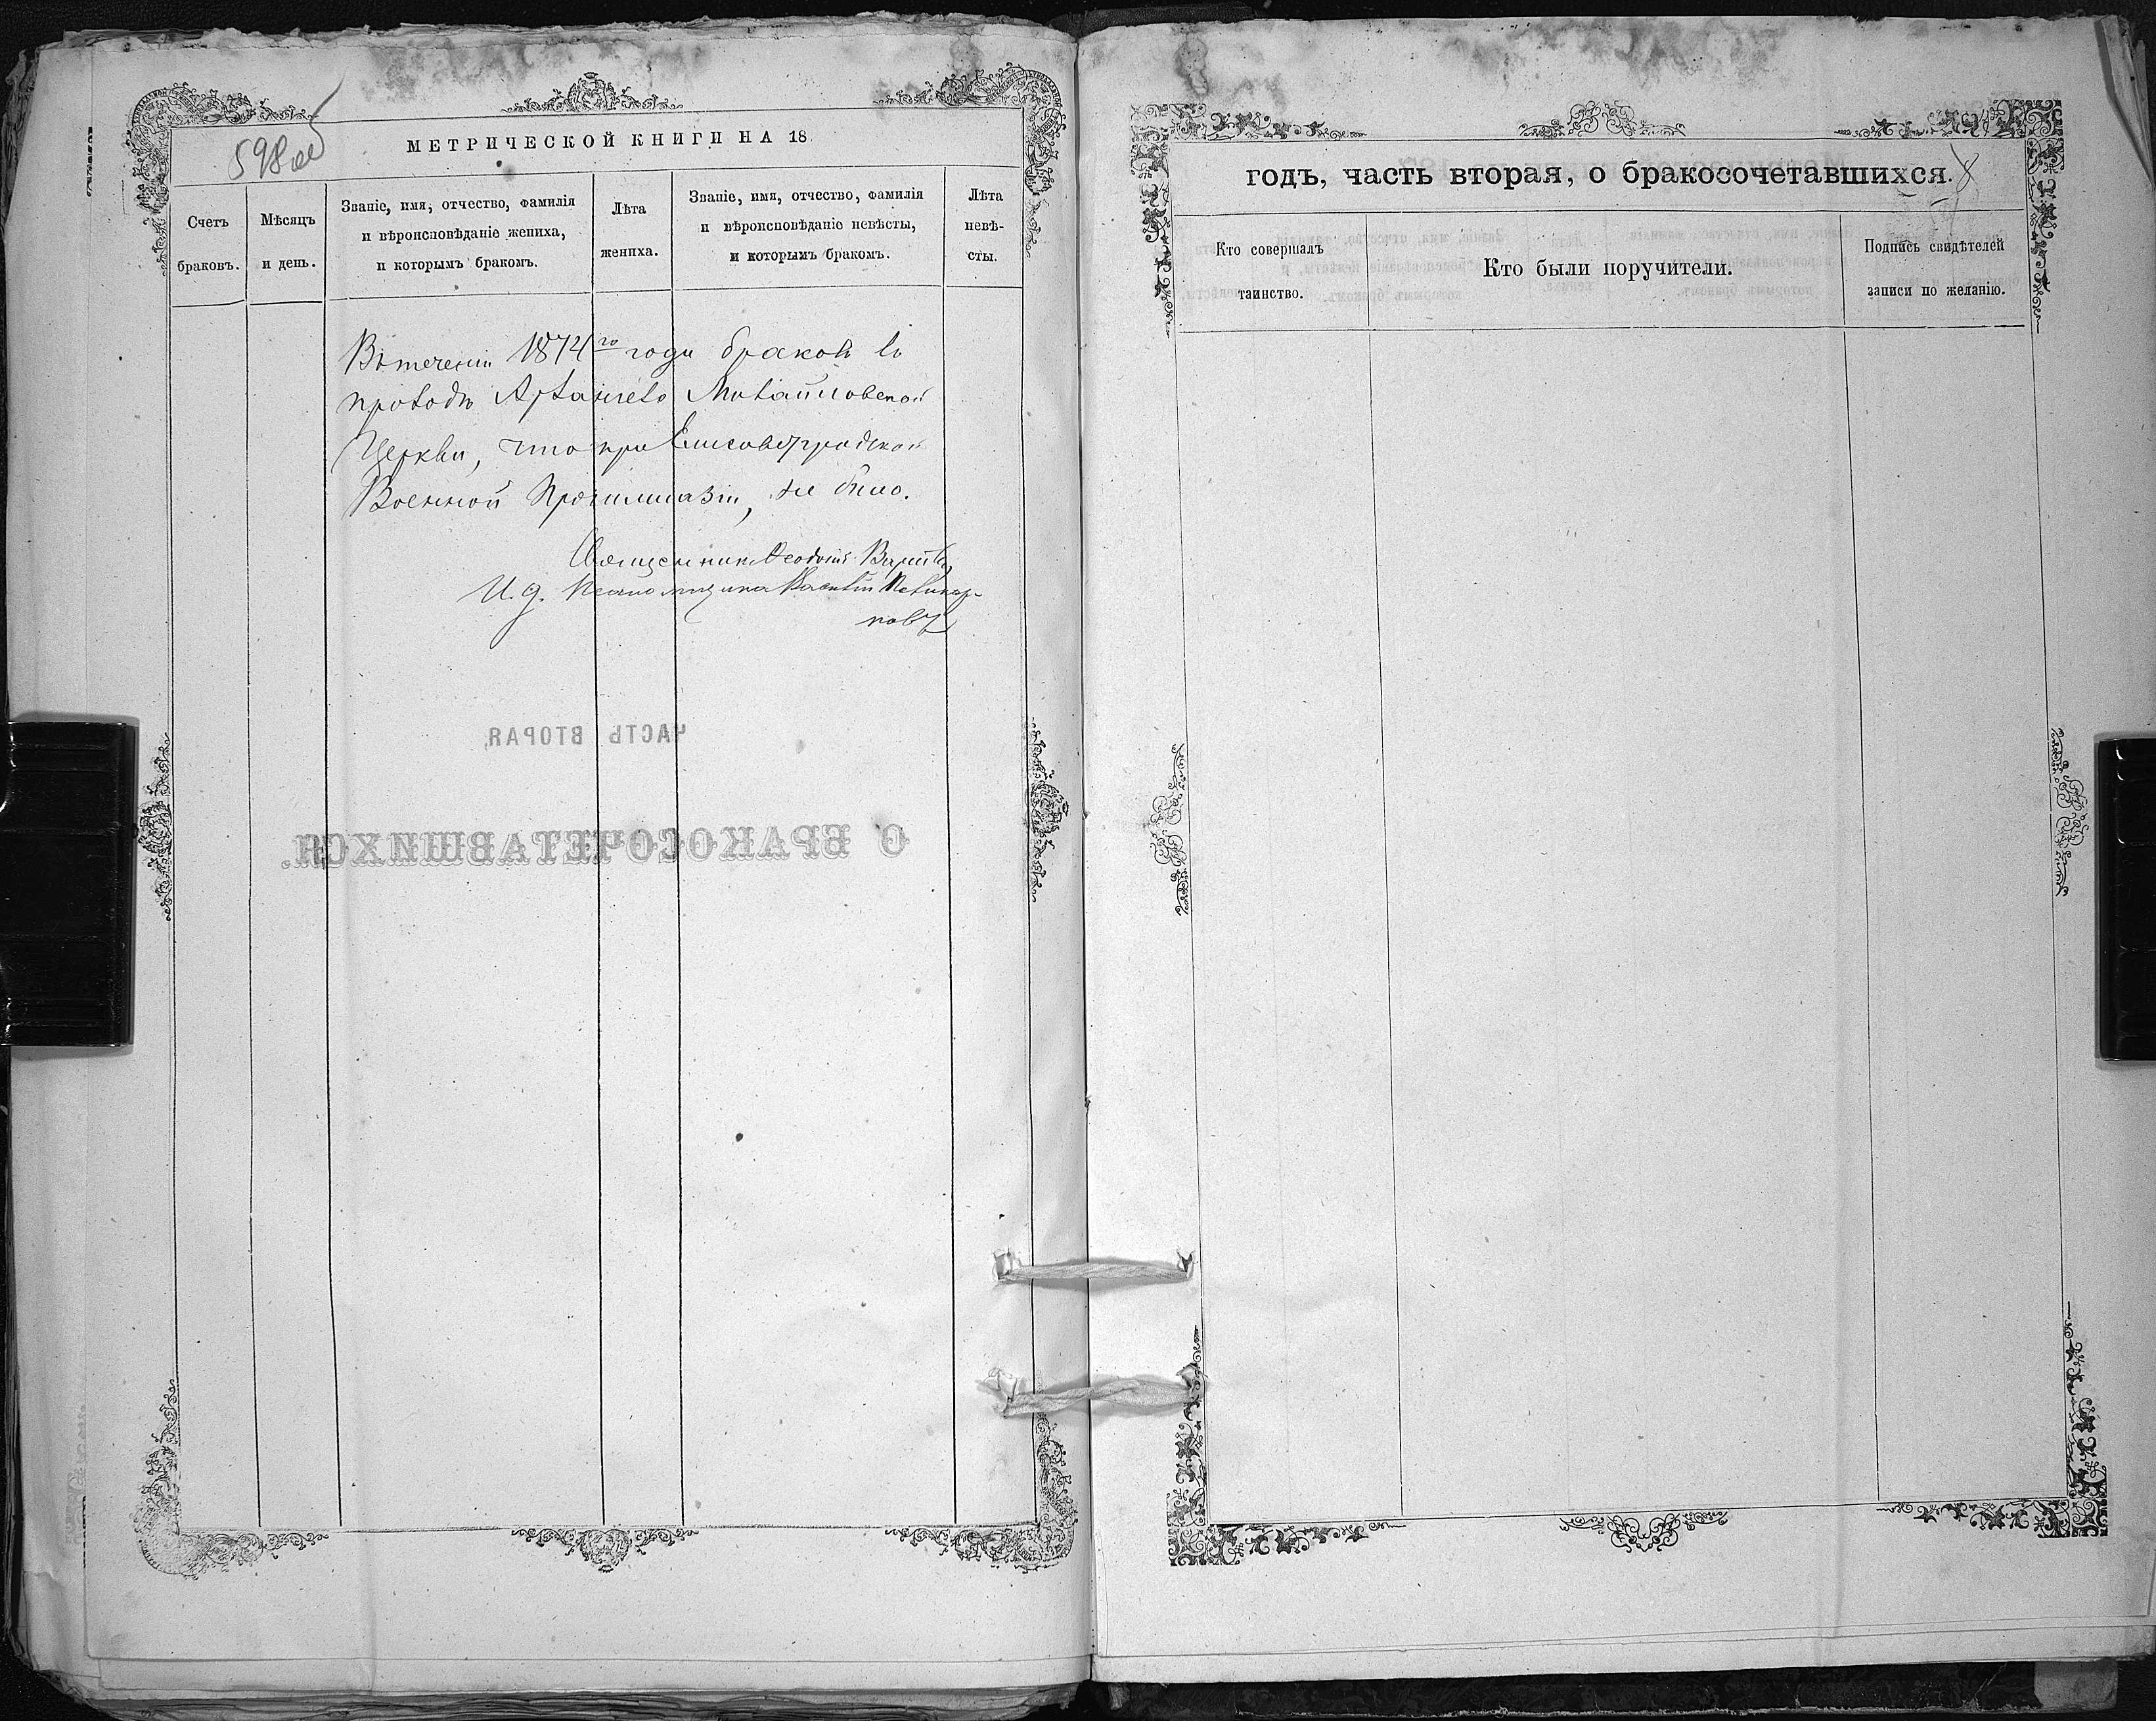 598об
МЕТРИЧЕСКОЙ КНИГИ НА 18
Счетъ браковъ.
Мѣсяцъ и день.
Званіе, имя, отчество, фамилія
и вѣроисповѣданіе жениха,
и которымъ бракомъ.
Лѣта жениха.
Званіе, имя, отчество, фамилія
и вѣроисповѣданіе невѣсты,
и которымъ бракомъ.
Лѣта невѣ-
сты.
Въ теченіи 1874го года браков въ
приходѣ Архангело Михайловской
Церкви, что при Елисаветградской
Военной Прогимназіи, не было.
Священникъ Феодосій
И. д. Псаломщика Василій Поликар-
повъ
ЧАСТЬ ВТОРАЯ,
О БРАКОСОЧЕТАВШИХСЯ.
годъ, часть вторая, о бракосочетавшихся.
Кто совершалъ
таинство.
Кто были поручители.
Подпись свидѣтелей
записи по желанію.